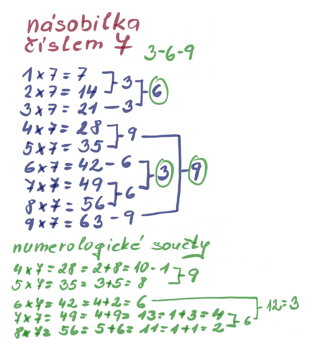 násobilka
číslem 7
3-6-9
1 x 7 = 7
2 x 7 = 14 3
3 x 7 = 21 - 3 6
4 x 7 = 28
5 x 7 = 35 9
6 x 7 = 42 - 6
7 x 7 = 49 3 9
8 x 7 = 56 6
9 x 7 = 63 - 9
numerologické součty
4 x 7 = 28 = 2+8 = 10 - 1
5 x 7 = 35 = 3+5 = 8 9
6 x 7 = 42 = 4+2 = 6 12=3
7 x 7 = 49 = 4+9 = 13 = 1+3 = 4
8 x 7 = 56 = 5+6 = 11 = 1+1 = 2 6